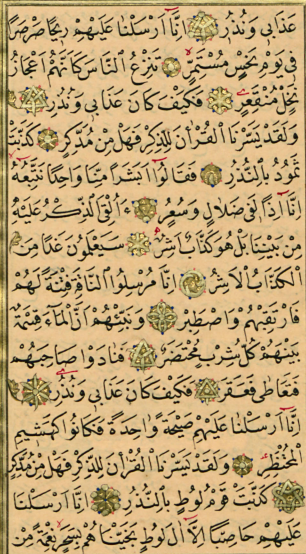 عَذَابِي وَنُذُرِ اِنَّا اَرْسَلْنَا عَلَيْهِمْ رِيحًا صَرْصَرًا
فِي يَوْمِ نَحْسٍ مُسْتَمِرٍّ تَنْزِعُ النَّاسَ كَاَنَّهُمْ اَعْجَازُ
نَخْلٍ مُنْقَعِرٍ فَكَيْفَ كَانَ عَذَابِي وَنُذُرِ
وَلَقَدْ يَسَّرْنَا الْقُرْاٰنَ لِلذِّكْرِ فَهَلْ مِنْ مُدَّكِرٍ كَذَّبَتْ
ثَمُودُ بِالنُّذُرِ فَقَالُوا اَبَشَرًا مِنَّا وَاحِدًا نَتَّبِعُهُ
اِنَّا اِذًا لَفِي ضَلَالٍ وَسُعُرٍ ءَاُلْقِيَ الذِّكْرُ عَلَيْهِ
مِنْ بَيْنِنَا بَلْ هُوَ كَذَّابٌ اَشِرٌ سَيَعْلَمُونَ غَدًا مَنِ
الْكَذَّابُ الْاَشِرُ اِنَّا مُرْسِلُوا النَّاقَةِ فِتْنَةً لَهُمْ
فَارْتَقِبْهُمْ وَاصْطَبِرْ وَنَبِّئْهُمْ اَنَّ الْمَاءَ قِسْمَةٌ
بَيْنَهُمْ كُلُّ شِرْبٍ مُحْتَضَرٌ فَنَادَوْا صَاحِبَهُمْ
فَتَعَاطٰى فَعَقَرَ فَكَيْفَ كَانَ عَذَابِي وَنُذُرِ
اِنَّا اَرْسَلْنَا عَلَيْهِمْ صَيْحَةً وَاحِدَةً فَكَانُوا كَهَشِيمِ
الْمُحْتَظِرِ وَلَقَدْ يَسَّرْنَا الْقُرْاٰنَ لِلذِّكْرِ فَهَلْ مِنْ مُدَّكِرٍ
كَذَّبَتْ قَوْمُ لُوطٍ بِالنُّذُرِ اِنَّا اَرْسَلْنَا
عَلَيْهِمْ حَاصِبًا اِلَّا اٰلَ لُوطٍ نَجَّيْنَاهُمْ بِسَحَرٍ نِعْمَةً مِنْ